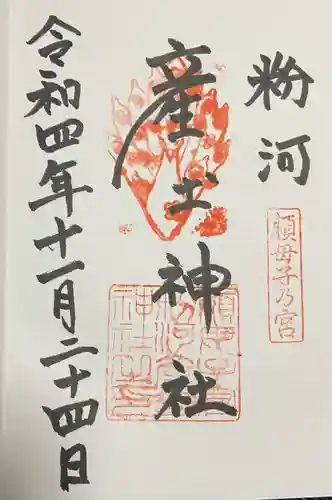 粉河
頼母子乃宮
産土神社
令和四年十一月二十四日